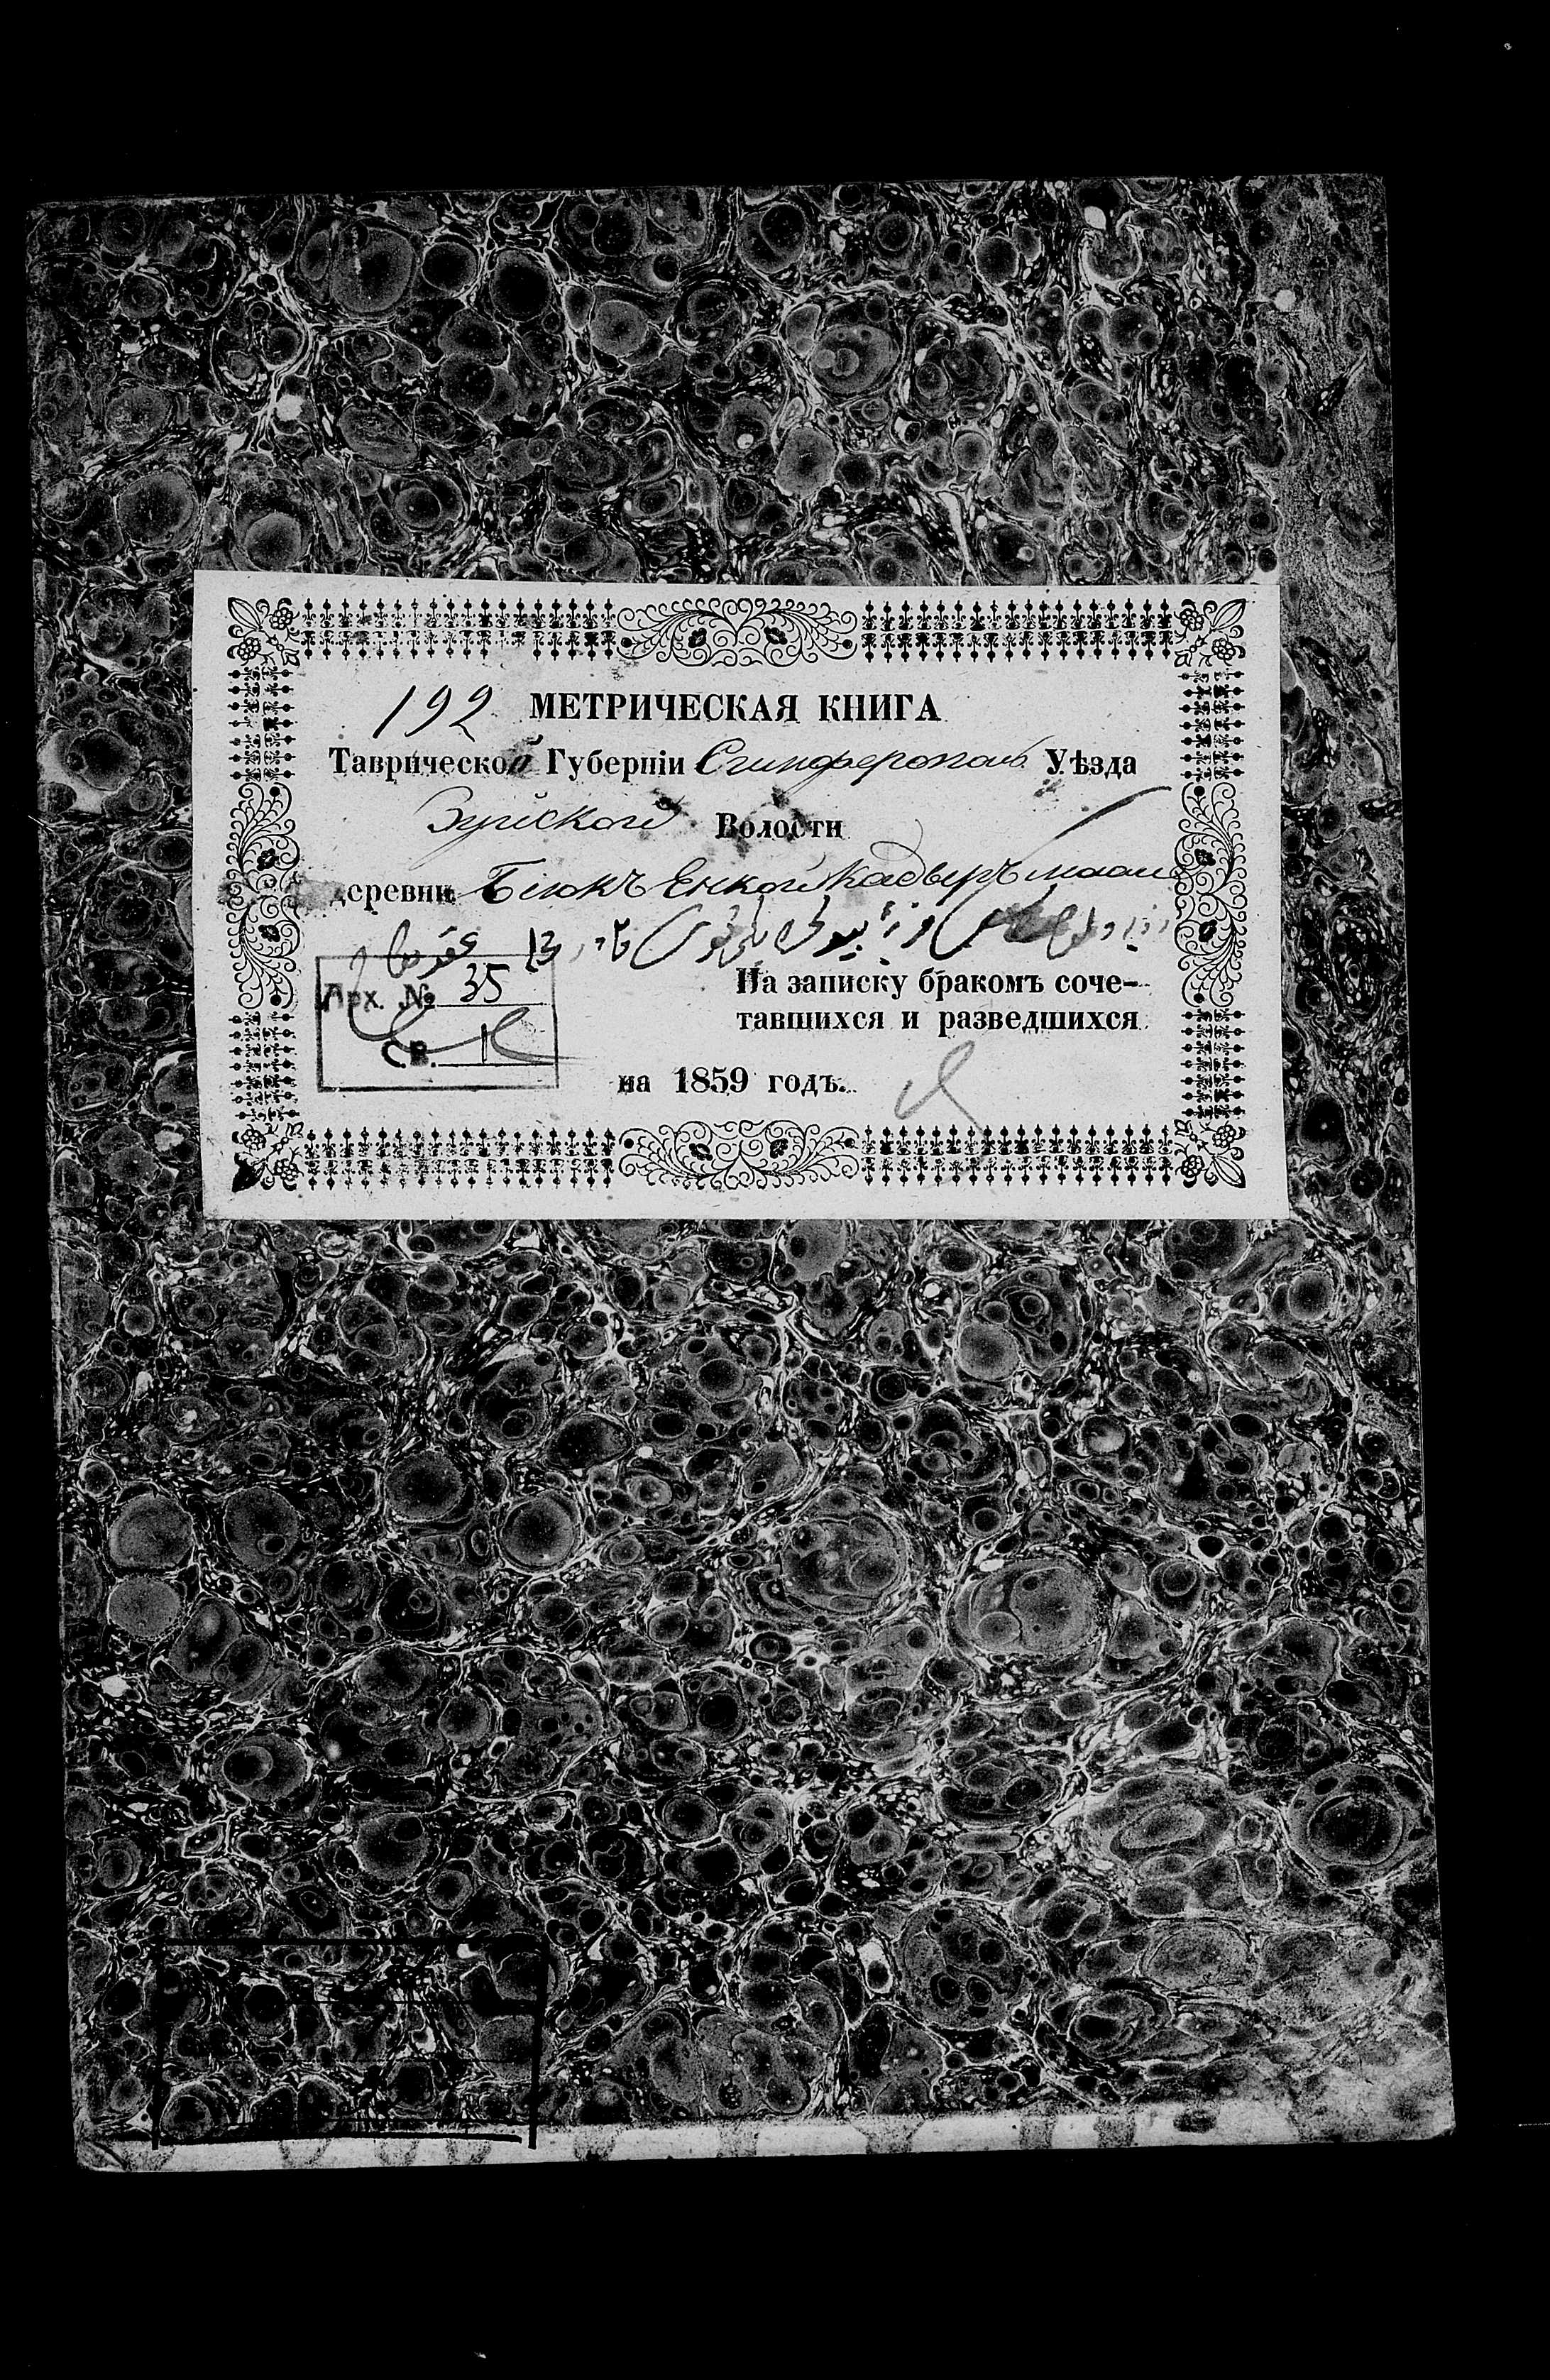 192 МЕТРИЧЕСКАЯ КНИГА
Таврической Губерніи Симферополь Уѣзда
Зуйской Волости
деревни Біюкъ Енкой Кадыръ маале
Арх. № 35
На записку бракомъ соче-
тавшихся и разведшихся
св. 1
на 1859 годъ.